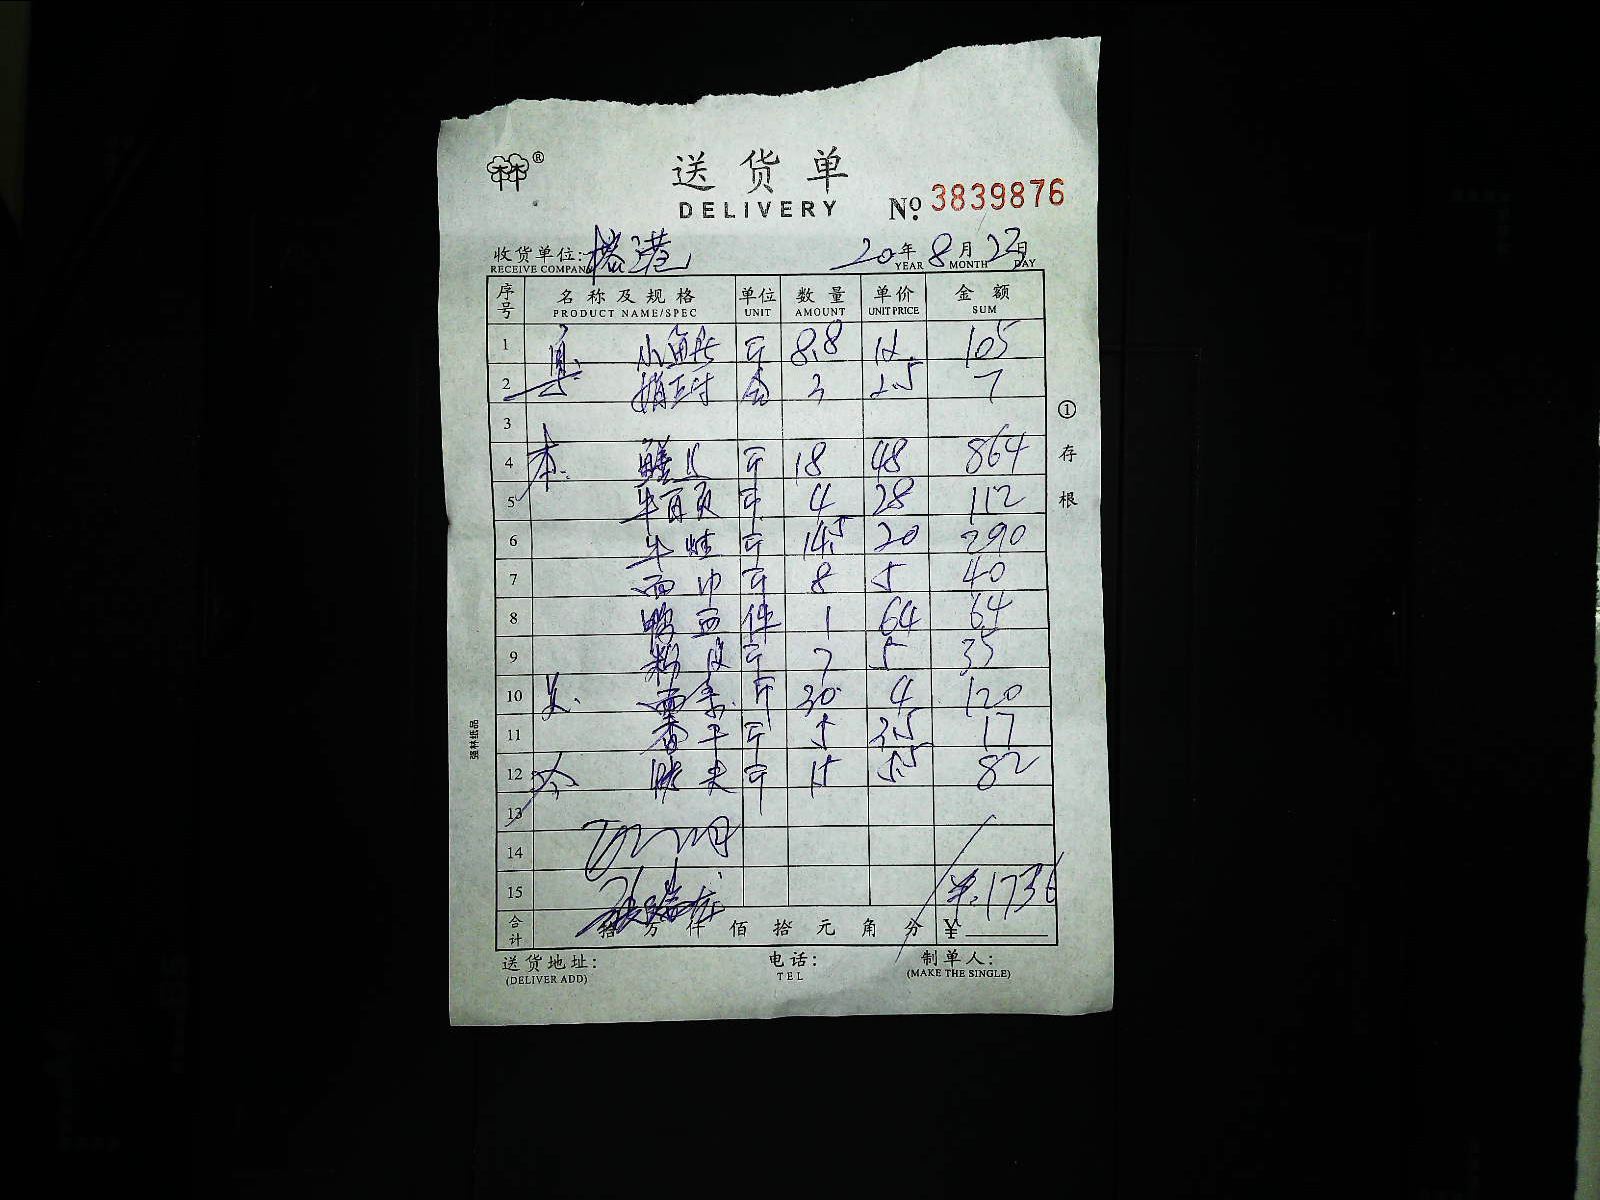 林 ®
送货单
DELIVERY
No. 3839876
收货单位: 港 20年8月23日
RECEIVE COMPANY YEAR MONTH DAY
序号 名称及规格 单位 数量 单价 金额
PRODUCT NAME/SPEC UNIT AMOUNT UNIT PRICE SUM
1 小 斤 8.8 12. 105
2 盒 3 2.5 7
3
4 本. 鳝 斤 18 48 864
5 牛百页 斤 4 28 112
6 牛 斤 14.5 20 290
7 面巾 斤 8 5 40
8 鸭血 件 1 64 64
9 粉皮 斤 7 5 35
10 面 斤 30 4 120
11 香干 斤 5 3.5 17
12 斤 15 5.5 82
13
14
15 ¥.1736
合计 拾 万 仟 佰 拾 元 角 分 ¥
送货地址: 电话: 制单人:
(DELIVER ADD) TEL (MAKE THE SINGLE)
① 存根
强林纸品